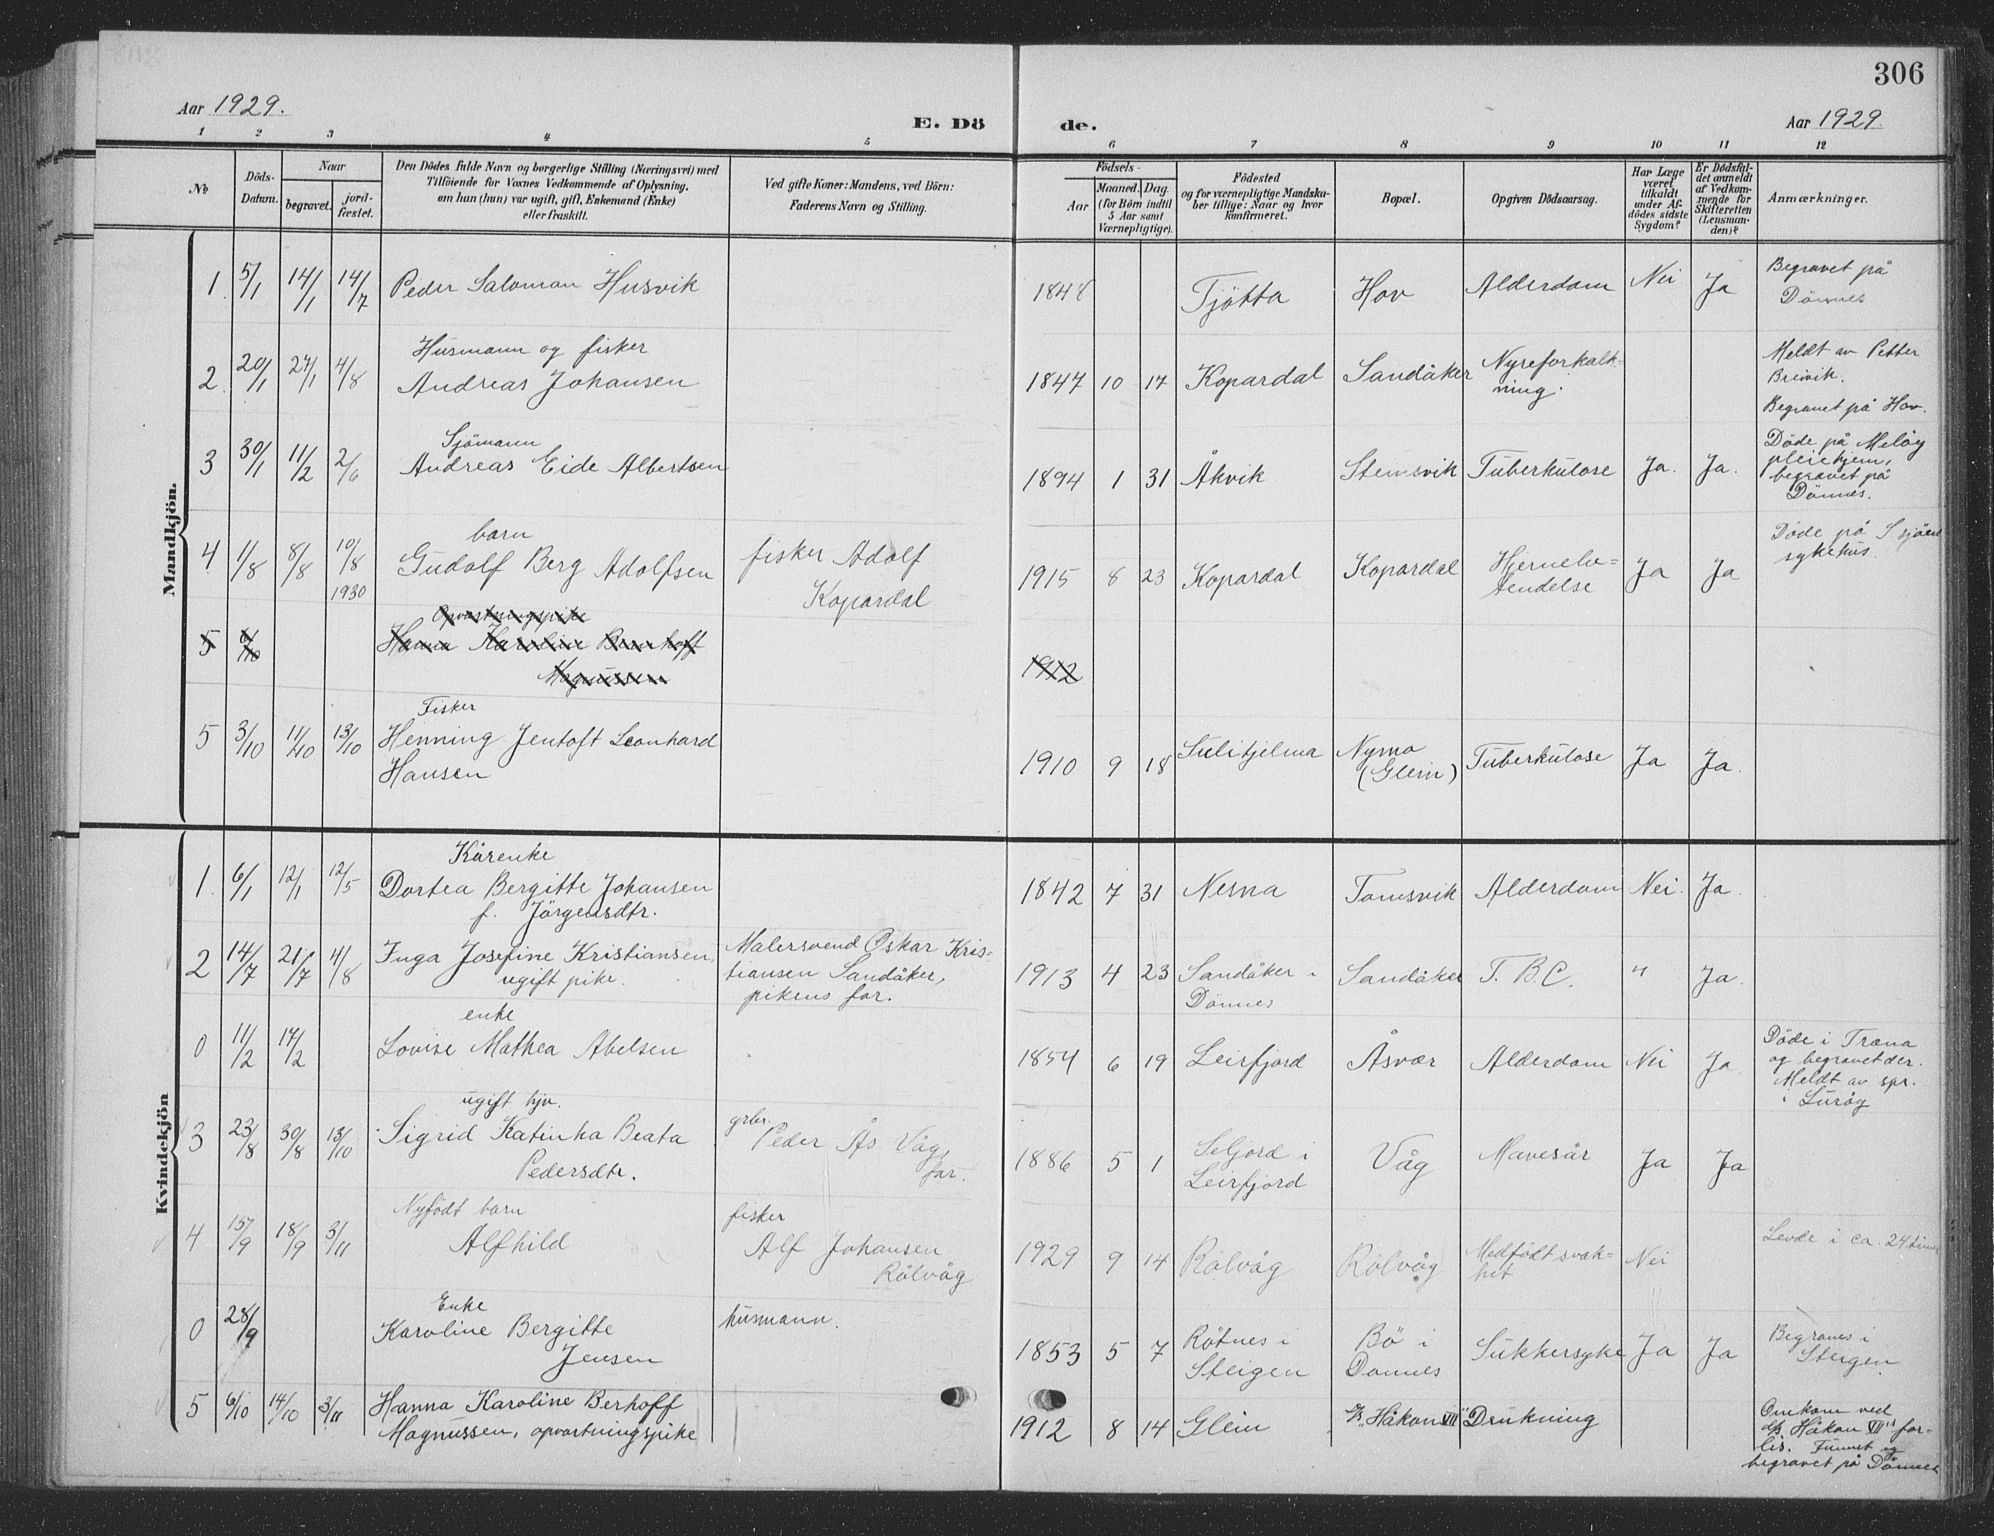 306
Aar 1929.
E. Dö
de.
Aar 1929.
1 2 3 4 5 6 7 8 9 10 11 12
No
Döds-
Datum.
Naar
begravet.
jord-
fæstet.
Den Dödes fulde Navn og borgerlige Stilling (Næringsvei) med
Tilföiende for Voxnes Vedkommende af Oplysning,
om hun (hun) var ugift, gift, Enkemand (Enke)
eller fraskilt.
Ved gifte Koner: Mandens, ved Börn:
Faderens Navn og Stilling.
Födsels-
Aar
Maaned.
Dag.
(for Börn indtil
5 Aar samt
Værnepligtige).
Födested
og for værnepligtige Mandska-
ber tillige: Naar og hvor
konfirmeret.
Bopæl.
Opgiven Dödsaarsag.
Har Læge
været
tilkaldt
under Af-
dödes sidste
Sygdom?
Er Dödsfal-
det anmeldt
af Vedkom-
mende for
Skifteretten
(Lensman-
den)?
Anmærkninger.
Mandkjön.
1. 5/1 14/1 14/7 Peder Salomon Husvik 1848 Tjötta Hov Alderdom Nei Ja
Begravet på
Dönnes
Husmann og fisker
2. 20/1 27/1 4/8 Andreas Johansen 1847 10 17 Kopardal Sandåker Nyreforkalk=
ning.
Meldt av Petter
Breivik.
Begravet på Hov.
Sjömann
3 30/1 11/2 2/6 Andreas Eide Albertsen 1894 1 31 Åkvik Stemsvik Tuberkulose Ja. Ja.
Döde på Melöy
pleiehjem,
begravet på
Dönnes.
barn
4 1/8 8/8 10/8 1930 Gudolf Berg Adolfsen fisker Adolf
Kopardal
1915 8 23 Kopardal Kopardal Hjernebe=
tendelse Ja Ja
Döde på Sjöen
sykehus.
Opvartningspike
5 6/10 Hanna Karoline Bernhoff
Magnussen
1912
Fisker
5 3/10 11/10 13/10 Henning Jentoft Leonhard
Hansen
1910 9 18 Sulitjelma Nymo
(Glein) Tuberkulose Ja Ja.
Kvindekjön
Kårenke
1. 6/1 12/1 12/5 Dortea Bergitte Johansen
f. Jörgensdtr.
1842 7 31 Nesna Tomsvik Alderdom Nei. Ja.
2 14/7 21/7 4/8 Inga Josefine Kristiansen,
ugift pike.
Malersvend Oskar Kris=
tiansen Sandåker,
pikens far.
1913 4 23 Sandåker i
Dönnes
Sandåker T.B.C. " Ja.
enke
0 11/2 17/2 Lovise Mathea Abelsen 1854 6 19 Leirfjord Åsvær Alderdom Nei Ja
Döde i Træna
og begravet der.
Meldt av spr.
i Luröy
ugift hjv.
3 23/8 30/8 13/10 Sigrid Katinka Beata
Pedersdtr.
grbr.
Peder Ås Våg,
far.
1886 5 1 Seljord i
Leirfjord
Våg Mavesår Ja Ja
Nyfödt barn
4 15/9 18/9 3/11 Alfhild
fisker
Alf Johansen
Rölvåg
1929 9 14 Rölvåg Rölvåg Medfödt svak=
het Nei
Levde i ca. 24 timer
Enke
0 28/9 Karoline Bergitte
Jensen
husmann.
1853 5 7 Rötnes i
Steigen
Bö i
Dönnes
Sukkersyke Ja Ja
Begraves i
Steigen
5 6/10 14/10 3/11 Hanna Karoline Berhoff
Magnussen, opvartningspike
1912 8 14 Glein "Håkon VII" Drukning
Omkom ved
d/s Håkon VII's for-
lis. Funnet og
begravet på Dönnes